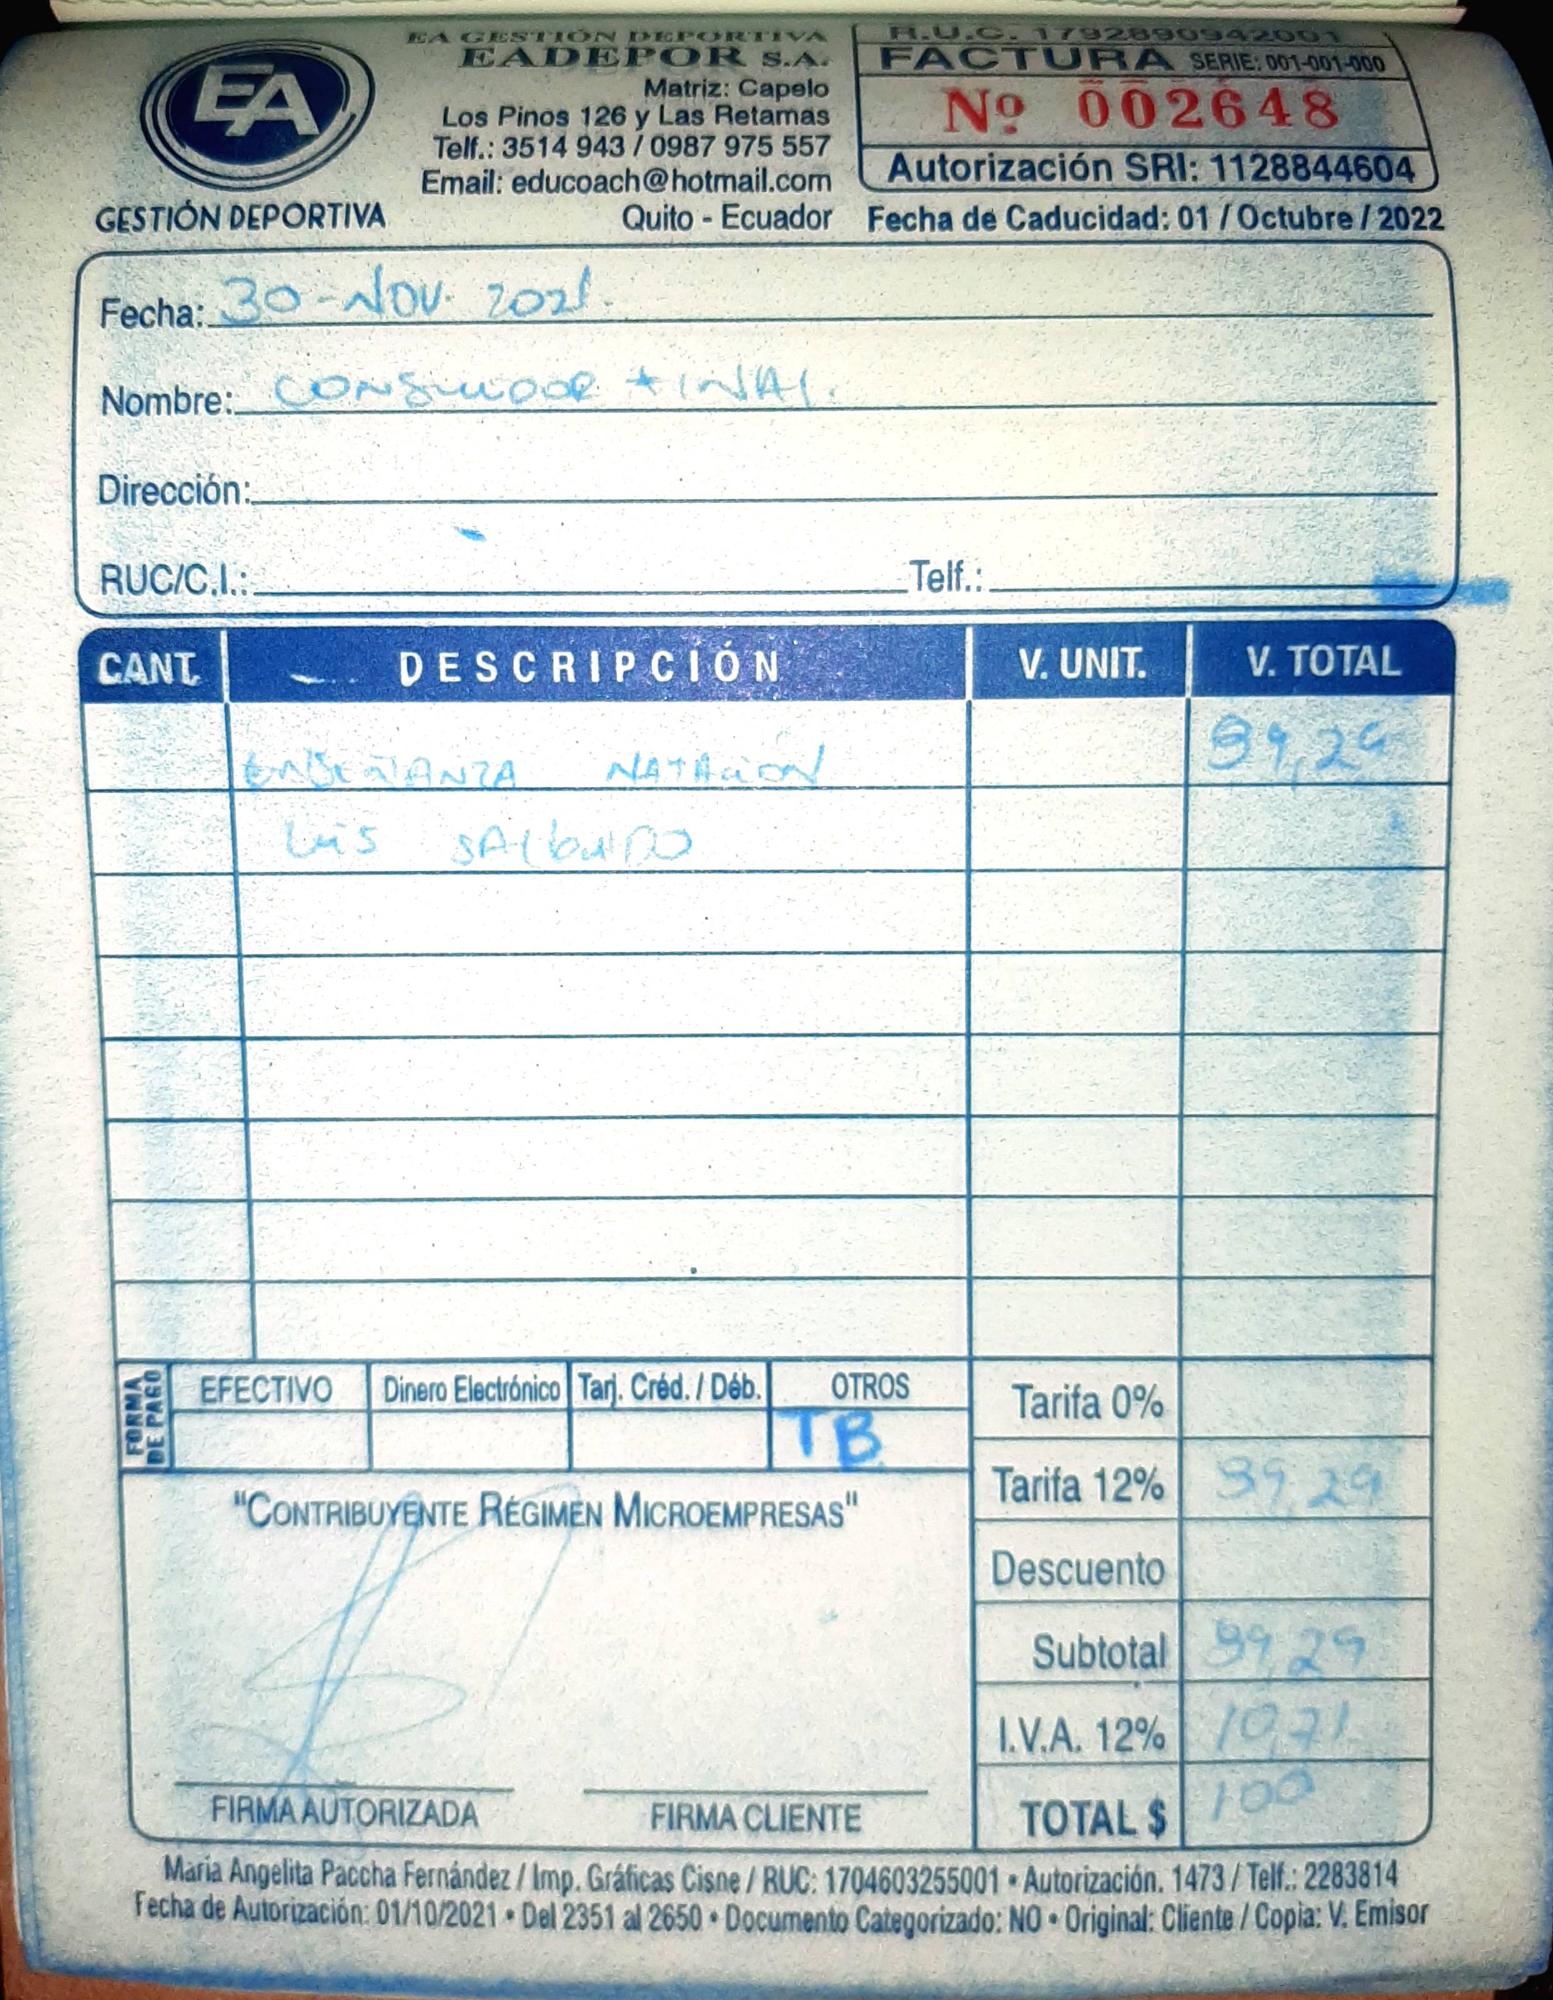 EA
GESTIÓN DEPORTIVA
EA GESTIÓN DEPORTIVA
EADEPOR S.A.
Matriz: Capelo
Los Pinos 126 y Las Retamas
Telf.: 3514 943 / 0987 975 557
Email: educoach@hotmail.com
Quito - Ecuador
R.U.C. 1792890942001
FACTURA SERIE: 001-001-000
Nº 002648
Autorización SRI: 1128844604
Fecha de Caducidad: 01 / Octubre / 2022
Fecha: 30-NOV. 2021.
Nombre: CONSUMIDOR FINAL.
Dirección:
RUC/C.I.: Telf.:
CANT. DESCRIPCIÓN V. UNIT. V. TOTAL
ENSEÑANZA NATACIÓN 89,29
LUIS
FORMA DE PAGO
EFECTIVO Dinero Electrónico Tarj. Créd. / Déb. OTROS
TB
Tarifa 0%
Tarifa 12% 89,29
Descuento
Subtotal 89,29
I.V.A. 12% 10,71
TOTAL $ 100
"CONTRIBUYENTE RÉGIMEN MICROEMPRESAS"
FIRMA AUTORIZADA FIRMA CLIENTE
Maria Angelita Paccha Fernández / Imp. Gráficas Cisne / RUC: 1704603255001 • Autorización. 1473 / Telf.: 2283814
Fecha de Autorización: 01/10/2021 • Del 2351 al 2650 • Documento Categorizado: NO • Original: Cliente / Copia: V. Emisor